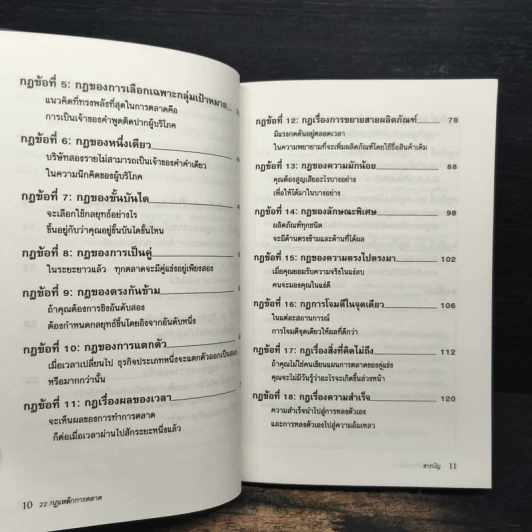 กฎข้อที่ 5: กฎของการเลือกเฉพาะกลุ่มเป้าหมาย
แนวคิดที่ทรงพลังที่สุดในการตลาดคือ
การเป็นเจ้าของคำพูดติดปากผู้บริโภค
กฎข้อที่ 6: กฎของหนึ่งเดียว
บริษัทสองรายไม่สามารถเป็นเจ้าของคำคำเดียว
ในความนึกคิดของผู้บริโภค
กฎข้อที่ 7: กฎของขั้นบันได
จะเลือกใช้กลยุทธ์อย่างไร
ขึ้นอยู่กับว่าคุณอยู่ขั้นบันไดขั้นไหน
กฎข้อที่ 8: กฎของการเป็นคู่
ในระยะยาวแล้ว ทุกตลาดจะมีคู่แข่งอยู่เพียงสอง
กฎข้อที่ 9: กฎของตรงกันข้าม
ถ้าคุณต้องการยิงอันดับสอง
ต้องกำหนดกลยุทธ์ขึ้นโดยอิงจากอันดับหนึ่ง
กฎข้อที่ 10: กฎของการแตกตัว
เมื่อเวลาเปลี่ยนไป ธุรกิจประเภทหนึ่งจะแตกตัวออกเป็นสอง
หรือมากกว่านั้น
กฎข้อที่ 11: กฎเรื่องผลของเวลา
จะเห็นผลของการทำการตลาด
ก็ต่อเมื่อเวลาผ่านไปสักระยะหนึ่งแล้ว
10 22 กฎเหล็กการตลาด
กฎข้อที่ 12: กฎเรื่องการขยายสายผลิตภัณฑ์ 78
มีแรงกดดันอยู่ตลอดเวลา
ในความพยายามที่จะเพิ่มผลิตภัณฑ์โดยใช้ชื่อสินค้าเดิม
กฎข้อที่ 13: กฎของความมักน้อย 88
คุณต้องสูญเสียอะไรบางอย่าง
เพื่อให้ได้มาในบางอย่าง
กฎข้อที่ 14: กฎของลักษณะพิเศษ 98
ผลิตภัณฑ์ทุกชนิด
จะมีด้านตรงข้ามและด้านที่ได้ผล
กฎข้อที่ 15: กฎของความตรงไปตรงมา 102
เมื่อคุณยอมรับความจริงในแง่ลบ
คนจะมองคุณในแง่ดี
กฎข้อที่ 16: กฎการโจมตีในจุดเดียว 106
ในแต่ละสถานการณ์
การโจมตีจุดเดียวให้ผลที่ดีกว่า
กฎข้อที่ 17: กฎเรื่องสิ่งที่คิดไม่ถึง 112
ถ้าคุณไม่ใช่คนเขียนแผนการตลาดของคู่แข่ง
คุณจะไม่มีวันรู้ว่าอะไรจะเกิดขึ้นล่วงหน้า
กฎข้อที่ 18: กฎเรื่องความสำเร็จ 120
ความสำเร็จนำไปสู่การหลงตัวเอง
และการหลงตัวเองนำไปสู่ความล้มเหลว
สารบัญ 11